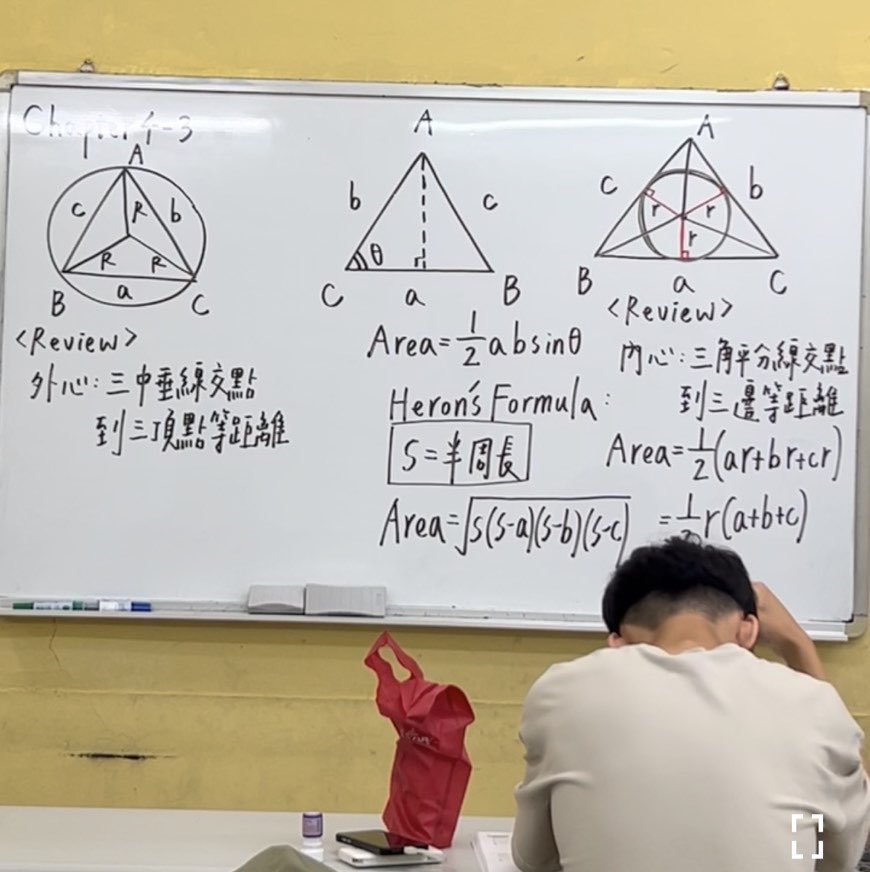 Chapter 4-3
A
c
R
b
R
R
B
a
C
<Review>
外心:三中垂線交點
到三頂點等距離
A
b
c
θ
C
a
B
Area=1/2 absinθ
Heron's Formula:
S=半周長
Area=√s(s-a)(s-b)(s-c)
A
c
b
r
r
r
B
a
C
<Review>
內心:三角平分線交點
到三邊等距離
Area=1/2(ar+br+cr)
=1/2 r(a+b+c)